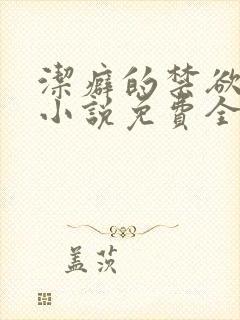 潔癖的禁欲
小說免費全
盖茨